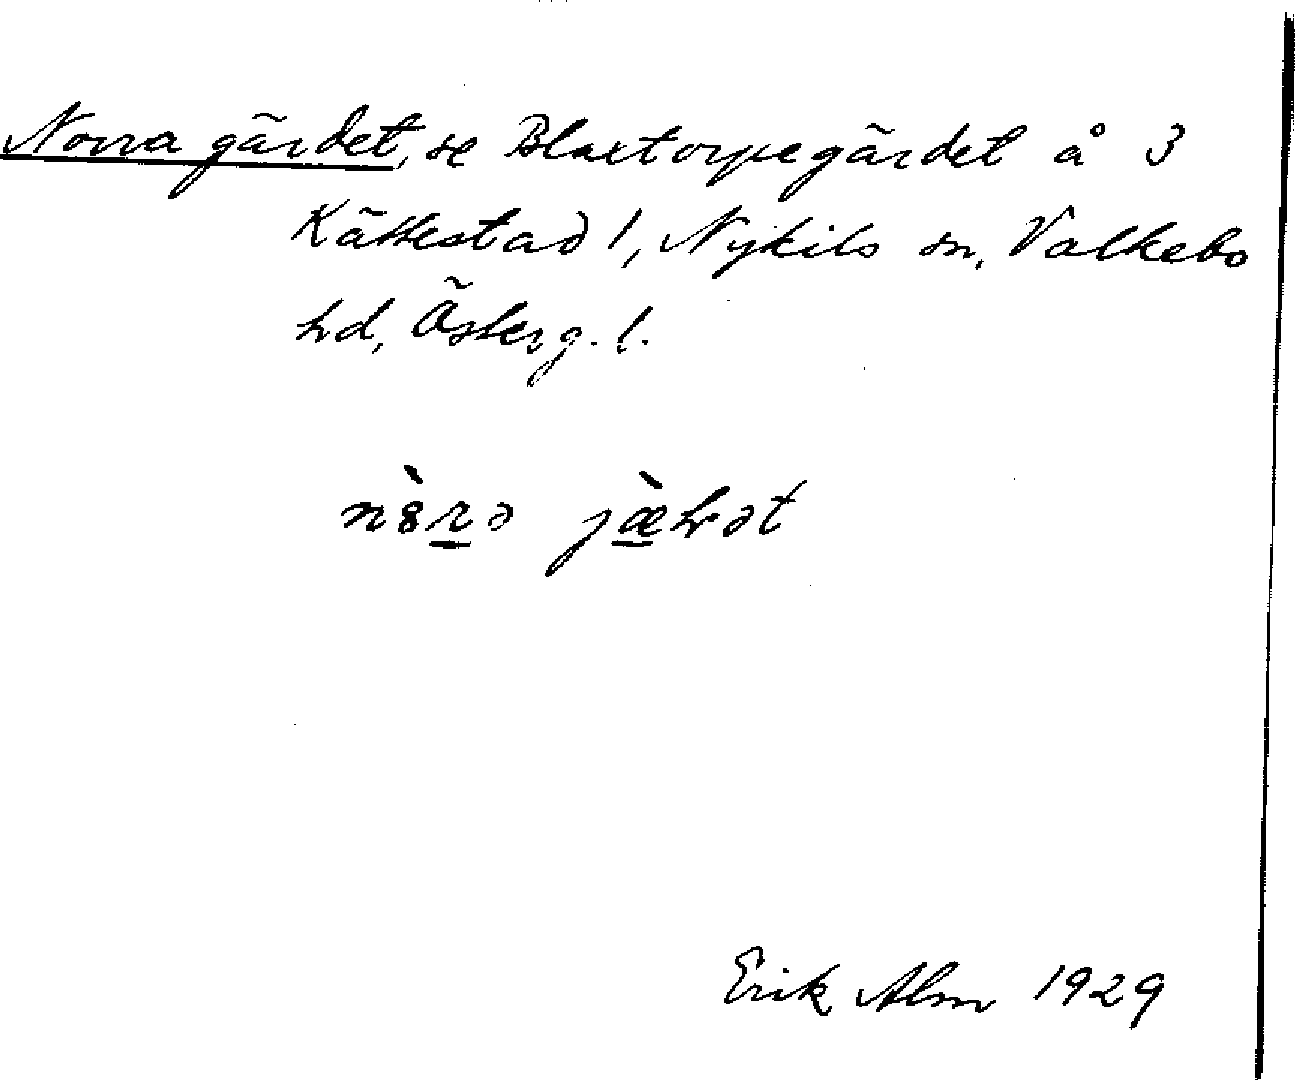 Norra gärdet, se Blaxtorpegärdet å 3
Kättestad 1, Nykils sn, Valkebo
hd, Österg. l.
Erik Alm 1929